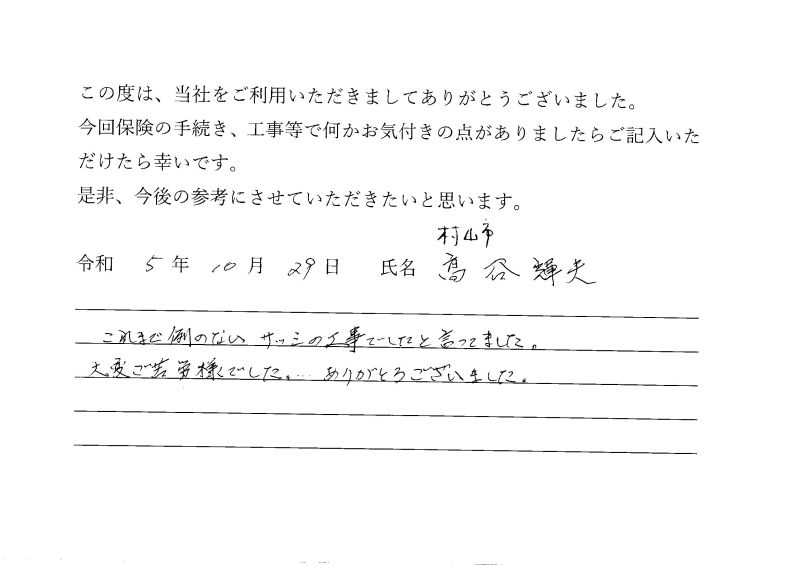 この度は、当社をご利用いただきましてありがとうございました。
今回保険の手続き、工事等で何かお気付きの点がありましたらご記入いた
だけたら幸いです。
是非、今後の参考にさせていただきたいと思います。
村山市
令和 5 年 10 月 29 日 氏名 高谷 輝夫
これまで例のない サッシの工事でしたと言ってました。
大変ご苦労様でした。… ありがとうございました。